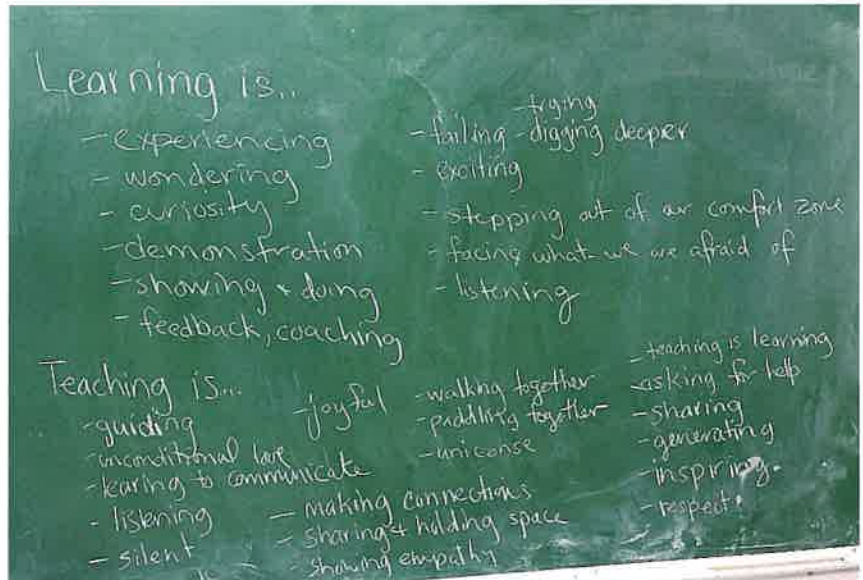 Learning is..
- experiencing
- wondering
- curiosity
- demonstration
- showing + doing
- feedback, coaching
- trying
- failing - digging deeper
- exciting
- stepping out of our comfort zone
- facing what we are afraid of
- listening
Teaching is...
- guiding
- unconditional love
- learing to communicate
- listening
- silent
- joyful
- making connections
- sharing + holding space
- showing empathy
- walking together
- paddling together
- teaching is learning
- asking for help
- sharing
- generating
- inspiring
- respect